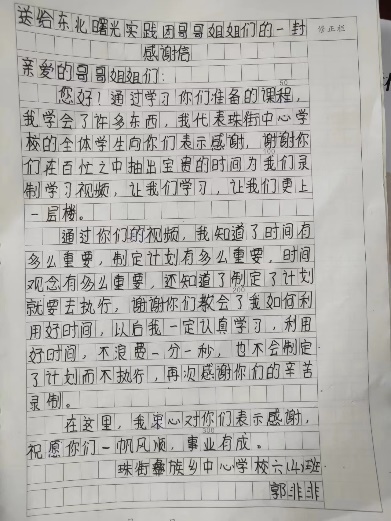 送给东北曙光实践团哥哥姐姐们的一封
感谢信
修正栏
亲爱的哥哥姐姐们：
您好！通过学习你们准备的课程，
我学会了许多东西，我代表珠街中心学
校的全体学生向你们表示感谢，谢谢你
们在百忙之中抽出宝贵的时间为我们录
制学习视频，让我们学习，让我们更上
一层楼。
通过你们的视频，我知道了时间有
多么重要，制定计划有多么重要，时间
观念有多么重要，还知道了制定了计划
就要去执行，谢谢你们教会了我如何利
用好时间，以后我一定认真学习，利用
好时间，不浪费一分一秒，也不会制定
了计划而不执行，再次感谢你们的辛苦
录制。
在这里，我衷心对你们表示感谢，
祝愿你们一帆风顺，事业有成。
珠街彝族乡中心学校六(4)班
郭非非